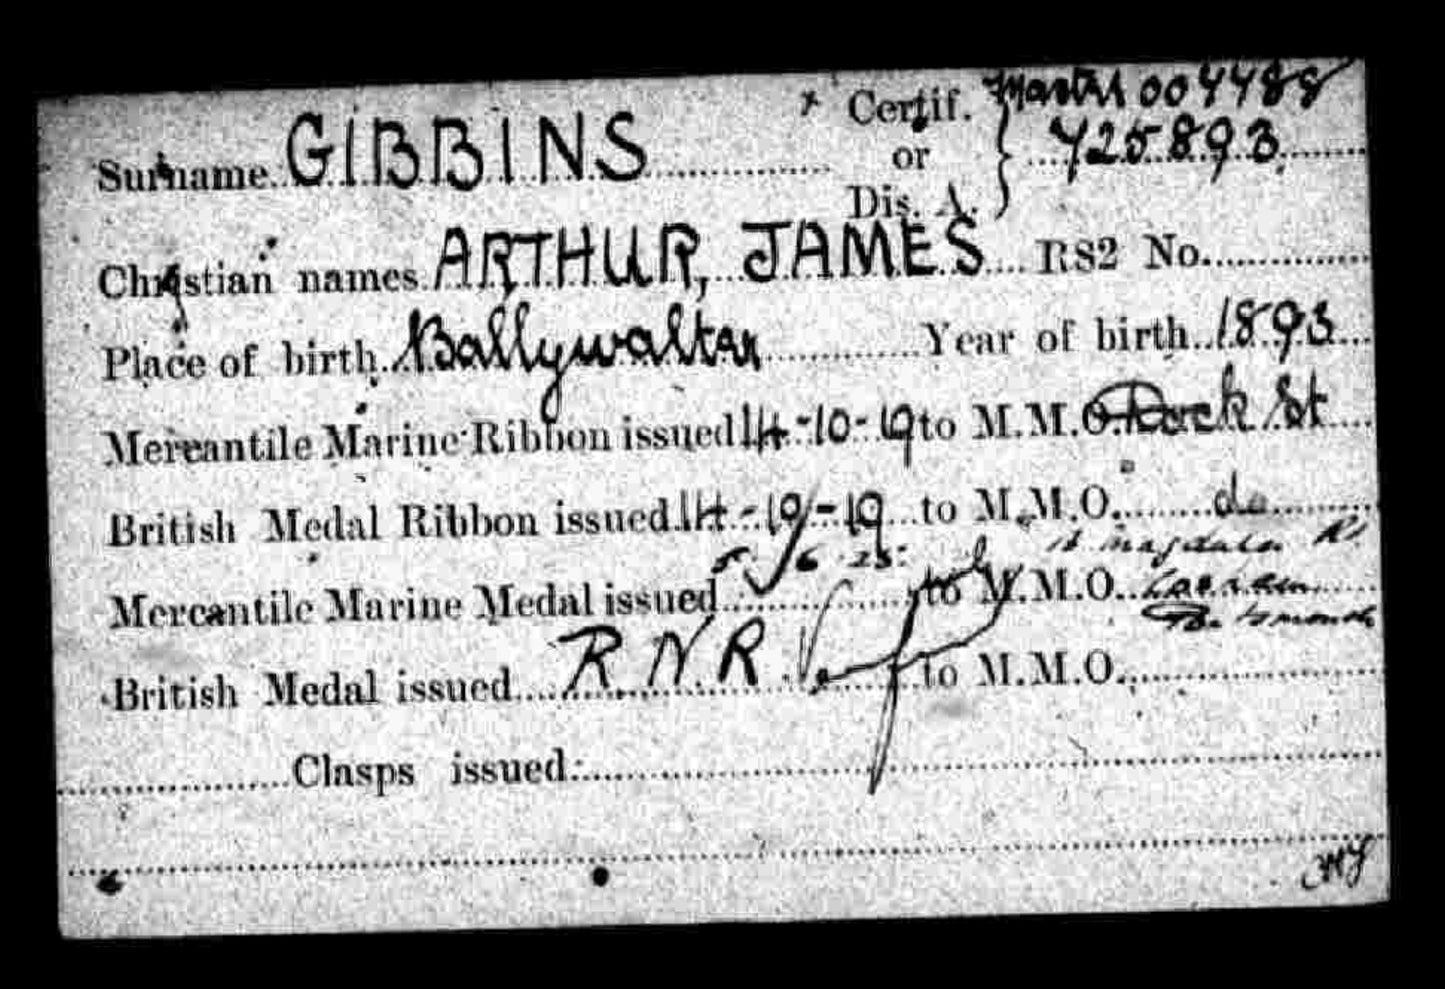 Certif. Master 004488
Surname GIBBINS or 725893
Dis. A.
Christian names ARTHUR, JAMES RS2 No.
Place of birth Ballywalter Year of birth 1893
Mercantile Marine Ribbon issued 14-10-19 to M.M.O. Dock St
British Medal Ribbon issued 14-10-19 to M.M.O. do
5 6 25 Magdala Rd
Mercantile Marine Medal issued to M.M.O. Cosham
Portsmouth
British Medal issued R N R to M.M.O.
Clasps issued: